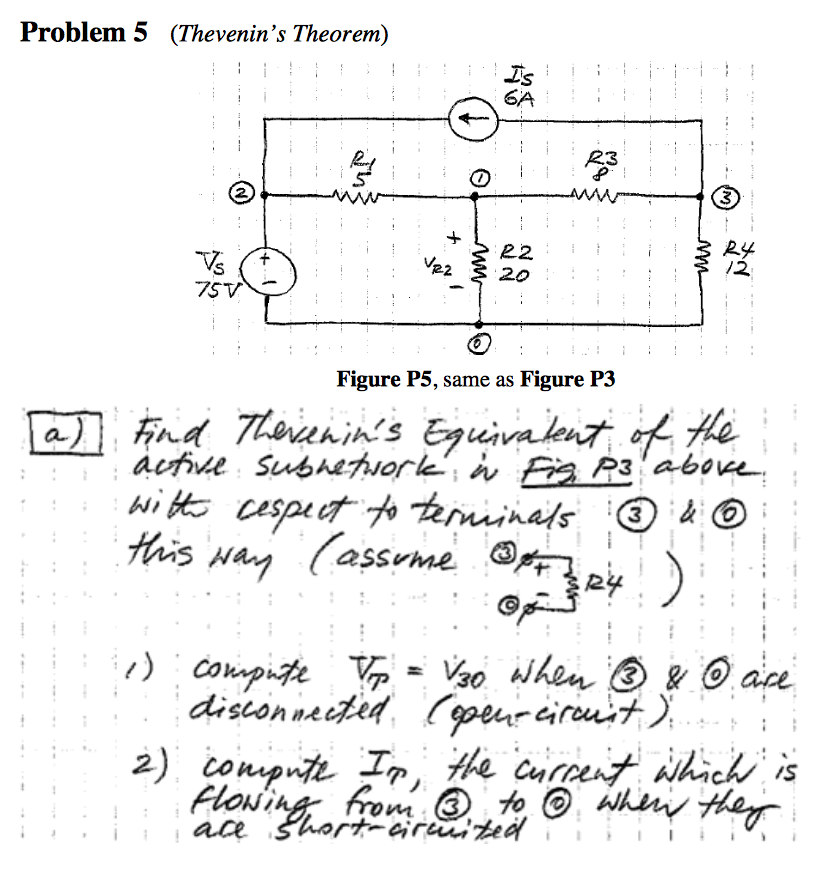 Problem 5 (Thevenin's Theorem)
Is
6A
R1
5
1
R3
8
2
3
+
VR2
-
R2
20
R4
12
Vs
75V
+
-
0
Figure P5, same as Figure P3
a) Find Thevenin's Equivalent of the
active subnetwork in Fig P3 above
with respect to terminals 3 & 0
this way (assume 3 + R4 )
0 -
1) compute VT = V30 when 3 & 0 are
disconnected (open-circuit)
2) compute IT, the current which is
flowing from 3 to 0 when they
are short-circuited